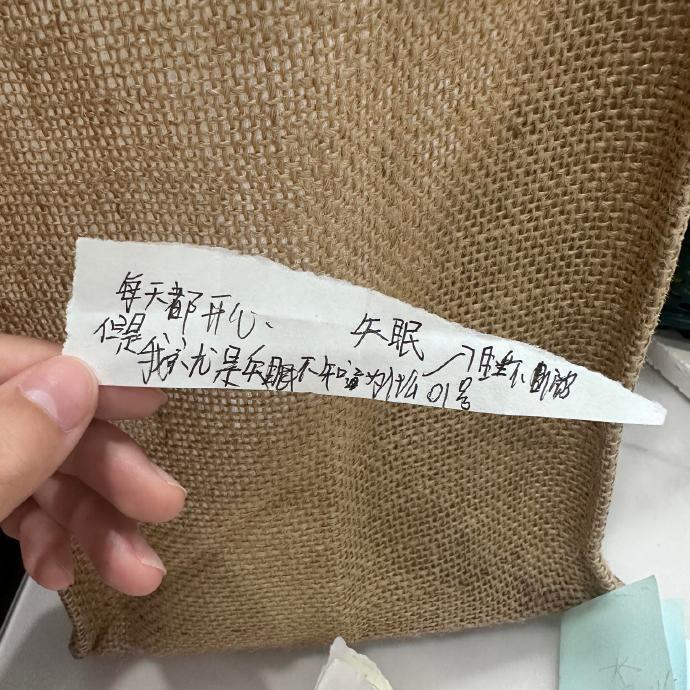 每天都开心、
但是 失眠
我就是失眠不知道为什么
01号